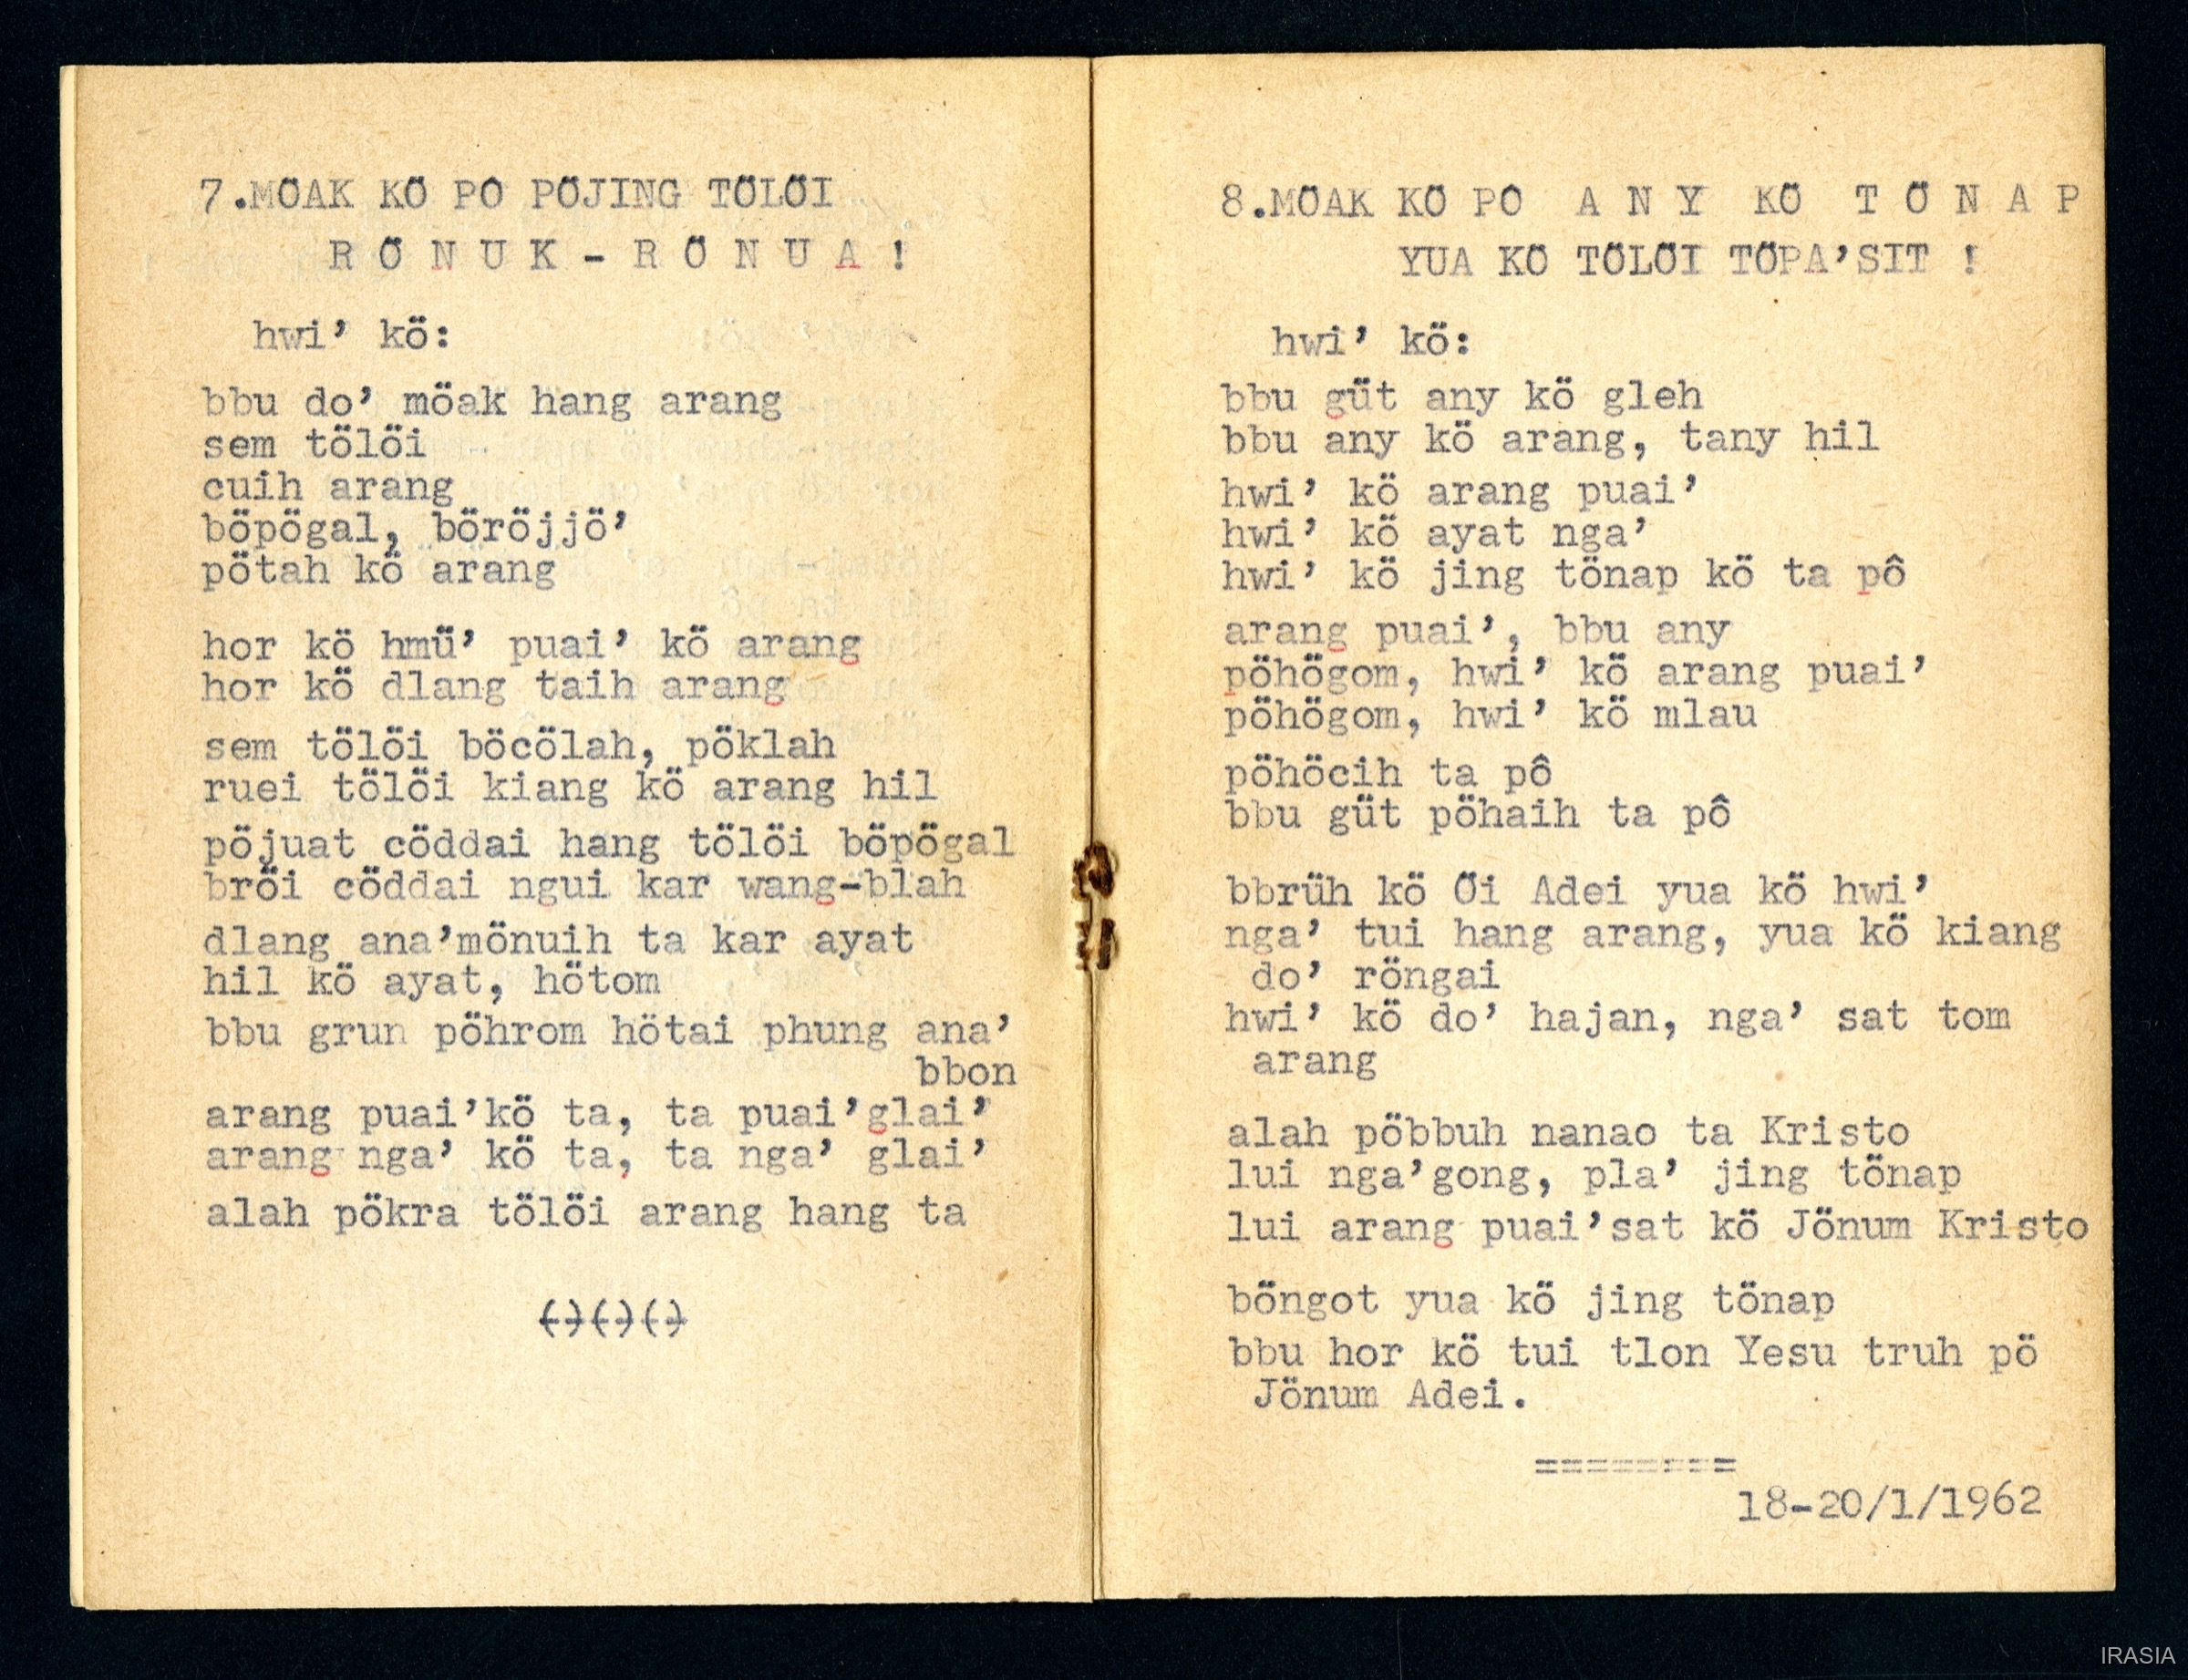 7.MÖAK KÖ PÔ PÖJING TÖLÖI
R Ö N U K - R Ö N U A !
hwi’ kö:
bbu do’ möak hang arang
sem tölöi
cuih arang
böpögal, böröjjö’
pötah kö arang
hor kö hmü’ puai’ kö arang
hor kö dlang taih arang
sem tölöi böcölah, pöklah
ruei tölöi kiang kö arang hil
pöjuat cöddai hang tölöi böpögal
bröi cöddai ngui kar wang-blah
dlang ana’mönuih ta kar ayat
hil kö ayat, hötom
bbu grun pöhrom hötai phung ana’
bbon
arang puai’kö ta, ta puai’glai’
arang nga’ kö ta, ta nga’ glai’
alah pökra tölöi arang hang ta
(-)(-)(-)
8.MÖAK KÖ PÔ A N Y KÖ T Ö N A P
YUA KÖ TÖLÖI TÖPA’SIT !
hwi’ kö:
bbu güt any kö gleh
bbu any kö arang, tany hil
hwi’ kö arang puai’
hwi’ kö ayat nga’
hwi’ kö jing tönap kö ta pô
arang puai’, bbu any
pöhögom, hwi’ kö arang puai’
pöhögom, hwi’ kö mlau
pöhöcih ta pô
bbu güt pöhaih ta pô
bbrüh kö Öi Adei yua kö hwi’
nga’ tui hang arang, yua kö kiang
do’ röngai
hwi’ kö do’ hajan, nga’ sat tom
arang
alah pöbbuh nanao ta Kristo
lui nga’gong, pla’ jing tönap
lui arang puai’sat kö Jönum Kristo
böngot yua kö jing tönap
bbu hor kö tui tlon Yesu truh pö
Jönum Adei.
========
18-20/1/1962
IRASIA